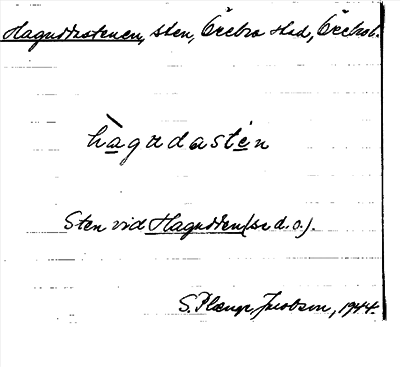 Haguddastenen, sten, Örebro stad, Örebro l.
hàgudastén
Sten vid Hagudden (se d.o.).
S. Plænge Jacobson, 1944.